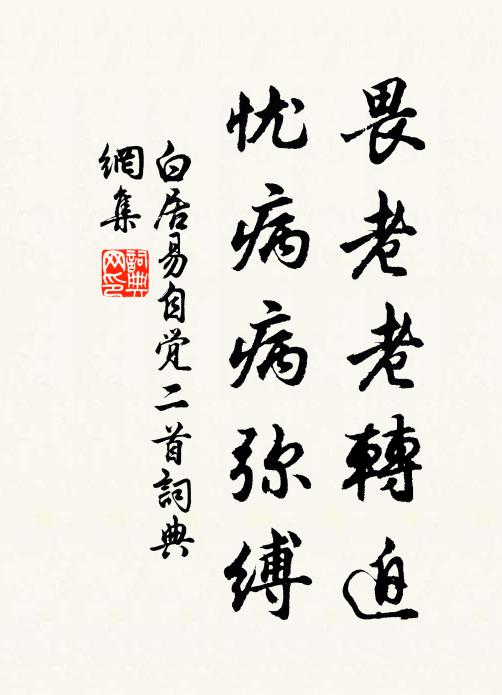 畏老老轉迫
忧病病弥缚
白居易自觉二首詞典
網集
詞典
网印